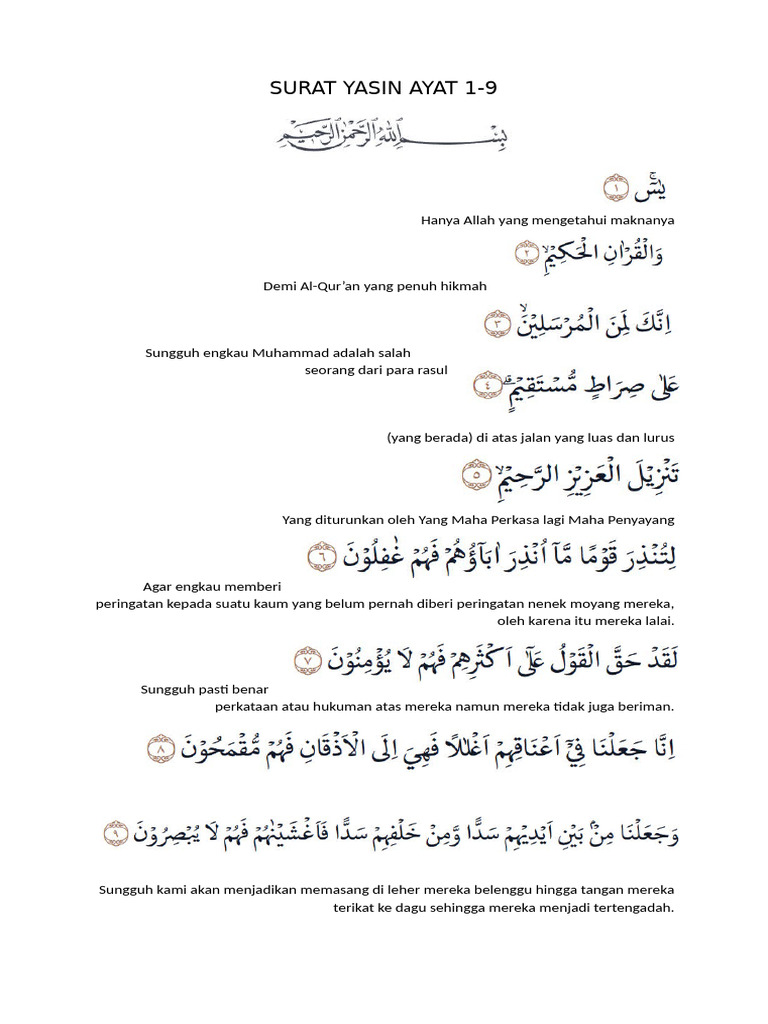 SURAT YASIN AYAT 1-9
بِسْــــــــمِ اللهِ الرَّحْمٰنِ الرَّحِيْمِ
يٰسۤ ۚ ١
Hanya Allah yang mengetahui maknanya
وَالْقُرْاٰنِ الْحَكِيْمِۙ ٢
Demi Al-Qur’an yang penuh hikmah
اِنَّكَ لَمِنَ الْمُرْسَلِيْنَۙ ٣
Sungguh engkau Muhammad adalah salah
seorang dari para rasul
عَلٰى صِرَاطٍ مُّسْتَقِيْمٍۗ ٤
(yang berada) di atas jalan yang luas dan lurus
تَنْزِيْلَ الْعَزِيْزِ الرَّحِيْمِۙ ٥
Yang diturunkan oleh Yang Maha Perkasa lagi Maha Penyayang
لِتُنْذِرَ قَوْمًا مَّآ اُنْذِرَ اٰبَاۤؤُهُمْ فَهُمْ غٰفِلُوْنَ ٦
Agar engkau memberi
peringatan kepada suatu kaum yang belum pernah diberi peringatan nenek moyang mereka,
oleh karena itu mereka lalai.
لَقَدْ حَقَّ الْقَوْلُ عَلٰٓى اَكْثَرِهِمْ فَهُمْ لَا يُؤْمِنُوْنَ ٧
Sungguh pasti benar
perkataan atau hukuman atas mereka namun mereka tidak juga beriman.
اِنَّا جَعَلْنَا فِيْٓ اَعْنَاقِهِمْ اَغْلٰلًا فَهِيَ اِلَى الْاَذْقَانِ فَهُمْ مُّقْمَحُوْنَ ٨
وَجَعَلْنَا مِنْۢ بَيْنِ اَيْدِيْهِمْ سَدًّا وَّمِنْ خَلْفِهِمْ سَدًّا فَاَغْشَيْنٰهُمْ فَهُمْ لَا يُبْصِرُوْنَ ٩
Sungguh kami akan menjadikan memasang di leher mereka belenggu hingga tangan mereka
terikat ke dagu sehingga mereka menjadi tertengadah.